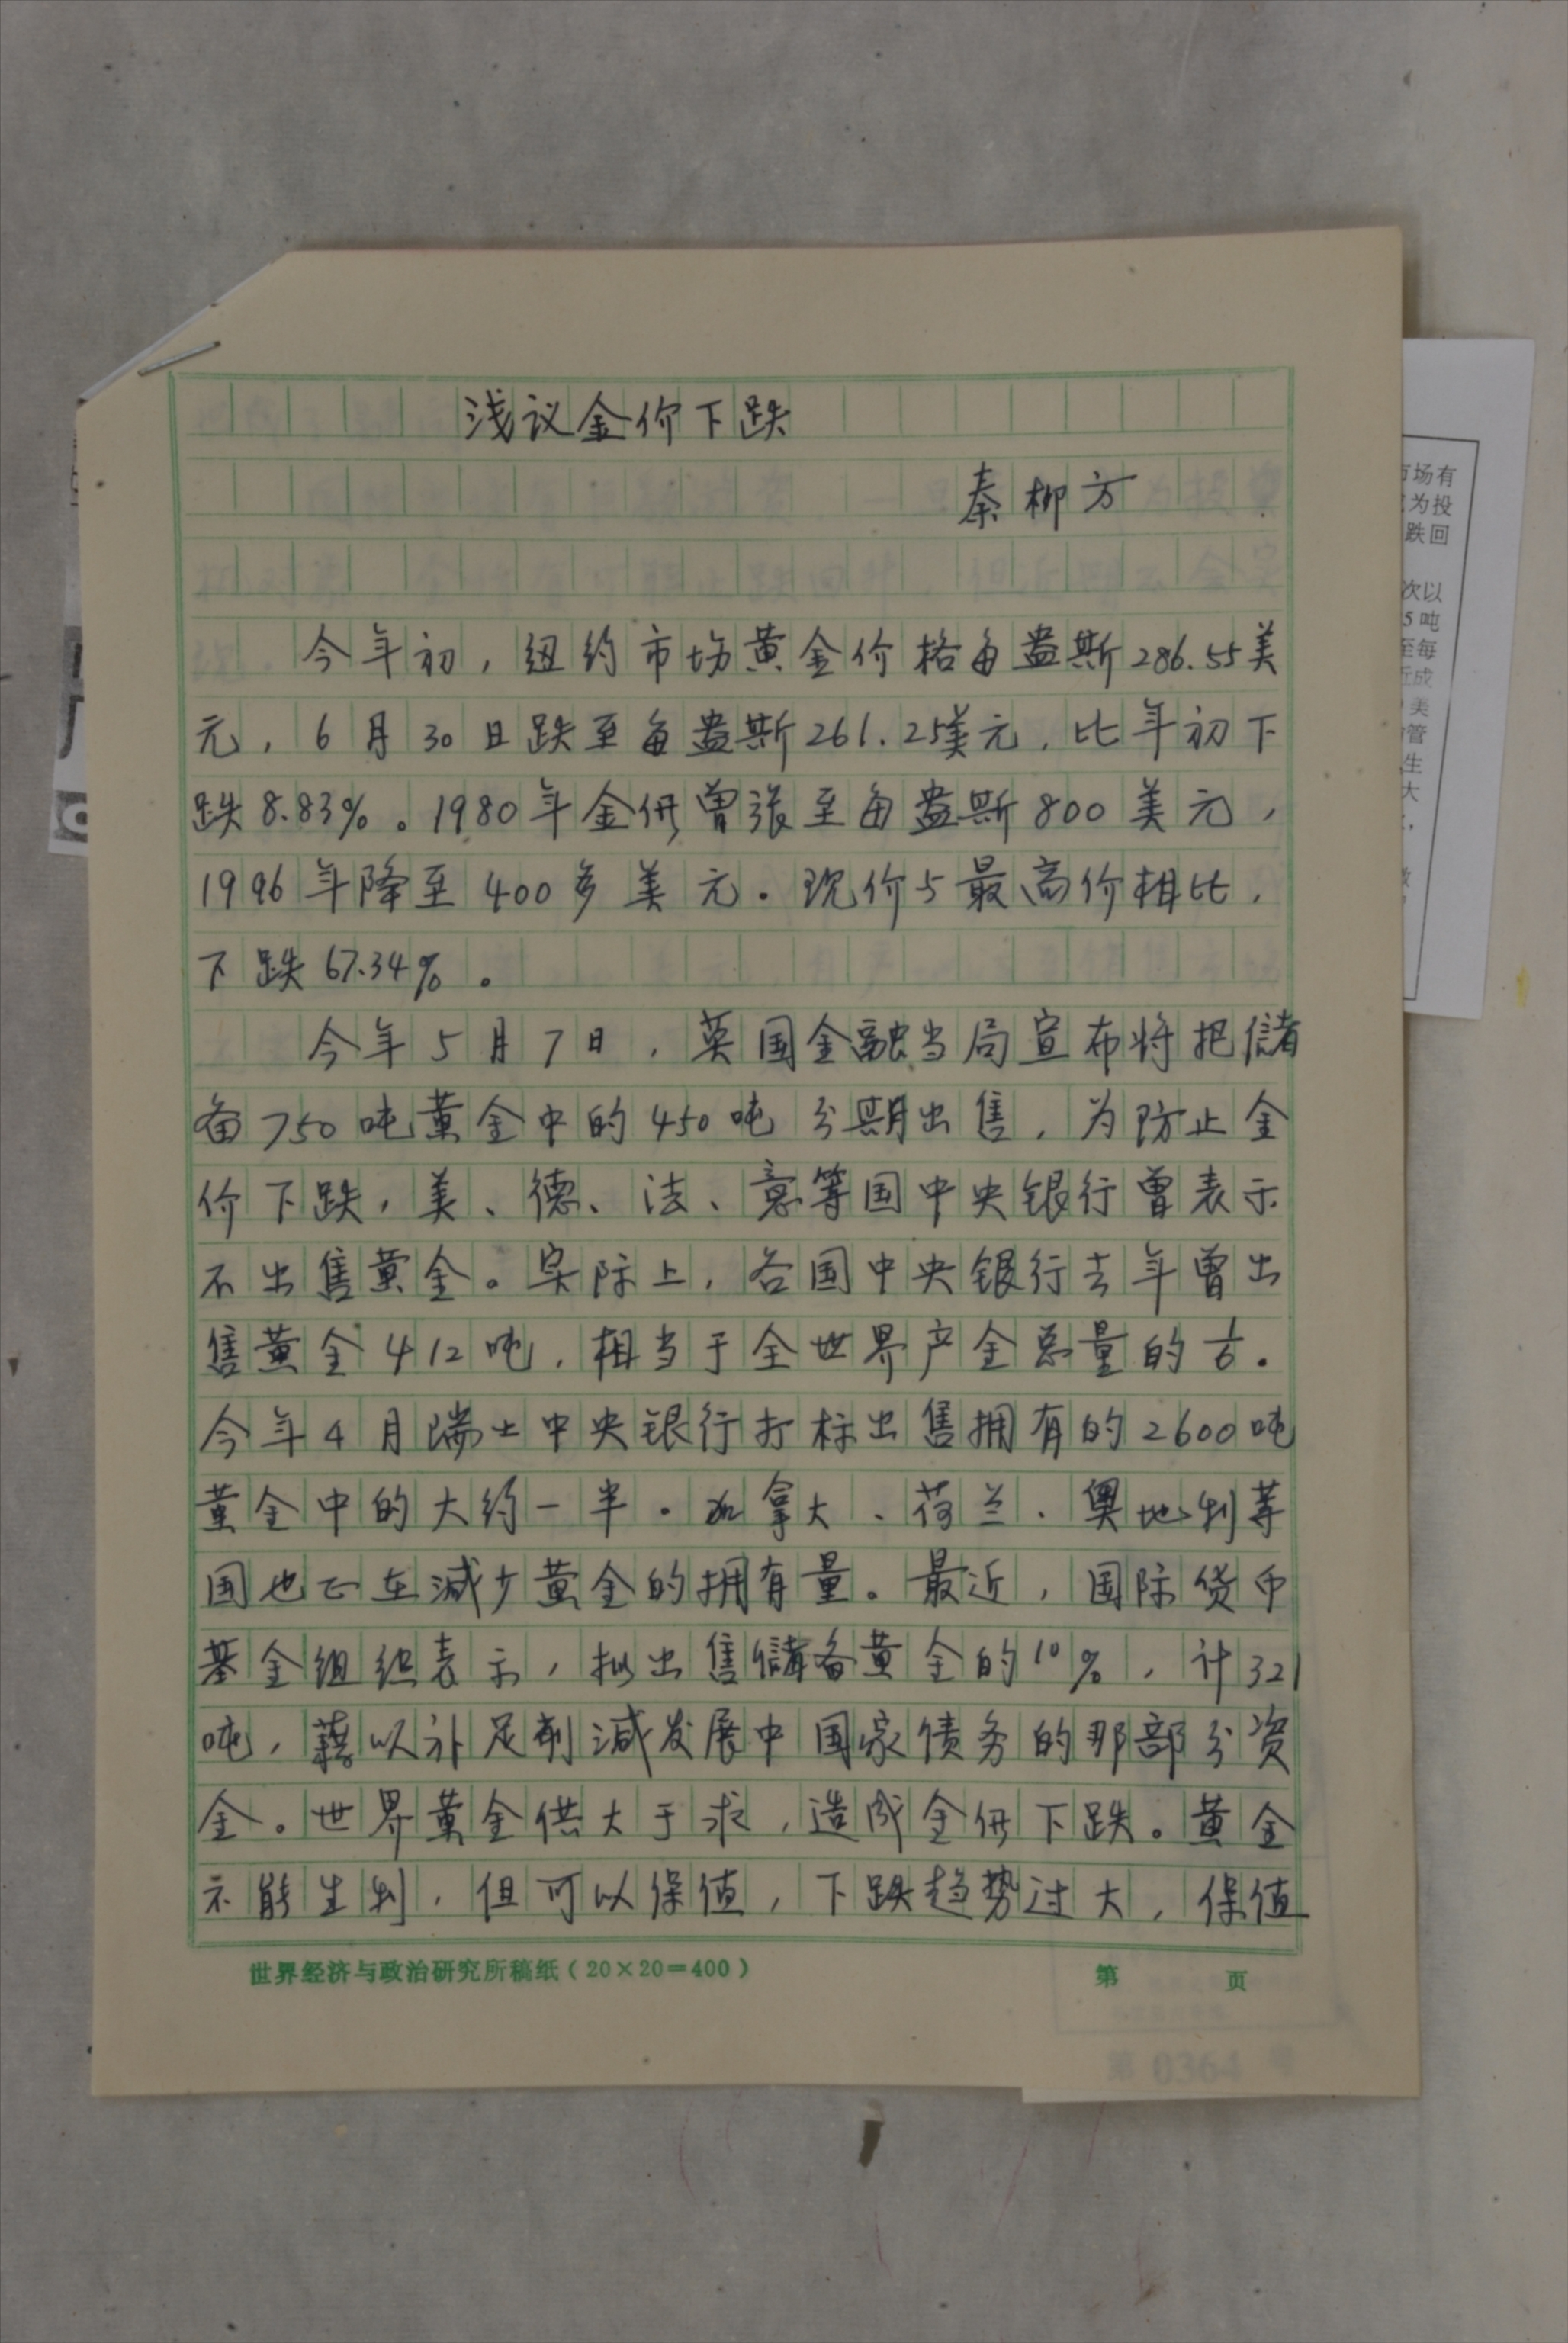 浅议金价下跌
秦柳方
今年初，纽约市场黄金价格每盎斯286.55美
元，6月30日跌至每盎斯261.25美元，比年初下
跌8.83%。1980年金价曾涨至每盎斯800美元，
1996年降至400多美元。现价与最高价相比，
下跌67.34%。
今年5月7日，英国金融当局宣布将把储
备750吨黄金中的450吨分期出售，为防止金
价下跌，美、德、法、意等国中央银行曾表示
不出售黄金。实际上，各国中央银行去年曾出
售黄金412吨，相当于全世界产金总量的1/6。
今年4月瑞士中央银行打标出售拥有的2600吨
黄金中的大约一半。加拿大、荷兰、奥地利等
国也正在减少黄金的拥有量。最近，国际货币
基金组织表示，拟出售储备黄金的10%，计321
吨，藉以补足削减发展中国家债务的那部分资
金。世界黄金供大于求，造成金价下跌。黄金
不能生利，但可以保值，下跌趋势过大，保值
世界经济与政治研究所稿纸（20×20=400）
第 页
市场有
为投
跌回
次以
5吨
至每
近成
美
管
生
大
第 0364 号